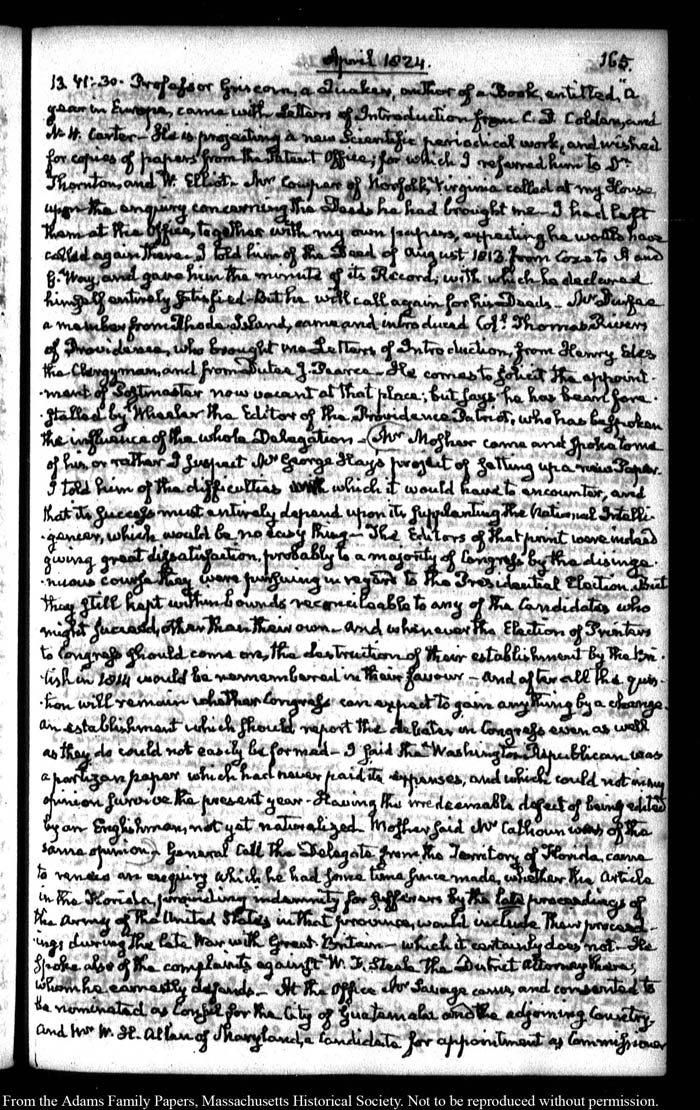 April 1824.
165.
13. VI:30. Professor Griscom, a Quaker, author of a Book, entitled, "a
year in Europe, came with Letters of Introduction from C. D. Colden, and
N. H. Carter. He is projecting a new Scientific periodical work, and wished
for copies of papers from the Patent Office; for which I referred him to Dr.
Thornton, and W. Elliot. Mr Cowper of Norfolk, Virginia called at my House
upon the enquiry concerning the Deeds he had brought me. I had left
them at the Office, together with my own papers, expecting he would have
called again there. I told him of the Deed of August 1813 from Coxe to A and
G. Way, and gave him the minute of its Record; with which he declared
himself entirely satisfied. But he will call again for his Deeds. Mr Durfee
a member from Rhode Island, came and introduced Coll. Thomas Rivers
of Providence, who brought me Letters of Introduction, from Henry Edes
the Clergyman, and from Dutee J. Pearce. He comes to solicit the appoint-
-ment of Postmaster now vacant at that place; but says he has been fore-
-stalled by Wheeler the Editor of the Providence Patriot, who has bespoken
the influence of the whole Delegation. Mr Mosher came and spoke to me
of his, or rather I suspect Mr George Hay's project of setting up a new Paper.
I told him of the difficulties with which it would have to encounter, and
that its success must entirely depend upon its supplanting the National Intelli-
-gencer, which would be no easy thing. The Editors of that print were indeed
giving great dissatisfaction, probably to a majority of Congress by the disinge-
-nuous course they were pursuing in regard to the Presidential Election. But
they still kept within bounds reconcileable to any of the Candidates who
might succeed, other than their own. And whenever the Election of Printers
to Congress should come on, the destruction of their establishment by the Bri-
-tish in 1814 would be remembered in their favour. And after all the ques-
-tion will remain whether Congress can expect to gain any thing by a change.
An establishment which should report the debates in Congress even as well
as they do could not easily be formed. I said the Washington Republican was
a partizan paper which had never paid its expenses, and which could not in my
opinion survive the present year. Having the irredeemable defect of being edited
by an Englishman, not yet naturalized. Mosher said Mr Calhoun was of the
same opinion. General Call the Delegate from the Territory of Florida, came
to renew an enquiry which he had some time since made, whether the Article
in the Florida, providing indemnity for sufferers by the late proceedings of
the Army of the United States in that province, would include their proceed-
-ings during the late War with Great-Britain. which it certainly does not. He
spoke also of the complaints against W. F. Steele the District Attorney there,
whom he earnestly defends. At the Office Mr Savage came, and consented to
be nominated as Consul for the City of Guatemala and the adjoining Country,
and Mr W. H. Allen of Maryland, a candidate for appointment as Commissioner
From the Adams Family Papers, Massachusetts Historical Society. Not to be reproduced without permission.